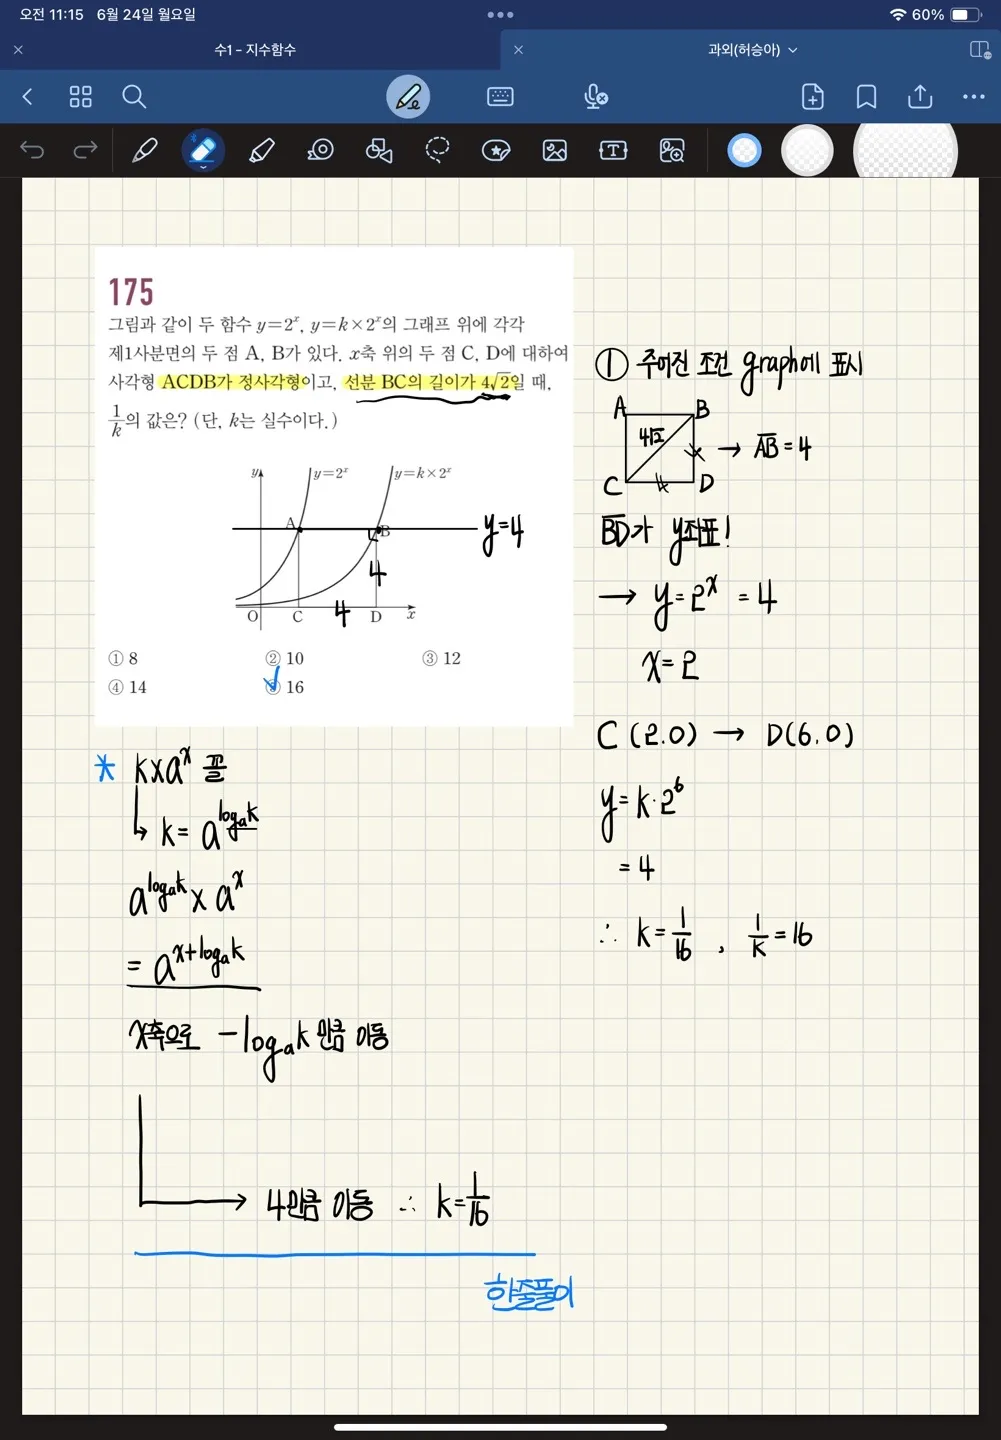 오전 11:15 6월 24일 월요일
60%
수1 - 지수함수
과외(허승아)
175
그림과 같이 두 함수 y=2ˣ, y=k×2ˣ의 그래프 위에 각각
제1사분면의 두 점 A, B가 있다. x축 위의 두 점 C, D에 대하여
사각형 ACDB가 정사각형이고, 선분 BC의 길이가 4√2일 때,
1/k의 값은? (단, k는 실수이다.)
y
y=2ˣ
y=k×2ˣ
A
B
y=4
4
O
C
4
D
x
① 8
② 10
③ 12
④ 14
⑤ 16
* k×aˣ 꼴
↳ k= a^(logₐk)
a^(logₐk) × aˣ
= a^(x+logₐk)
x축으로 -logₐk 만큼 이동
→ 4만큼 이동 ∴ k=1/16
한줄풀이
① 주어진 조건 graph에 표시
A
B
4√2
→ A̅B̅=4
C
4
D
B̅D̅가 y좌표!
→ y=2ˣ =4
x=2
C (2.0) → D(6.0)
y=k·2⁶
=4
∴ k=1/16 , 1/k=16